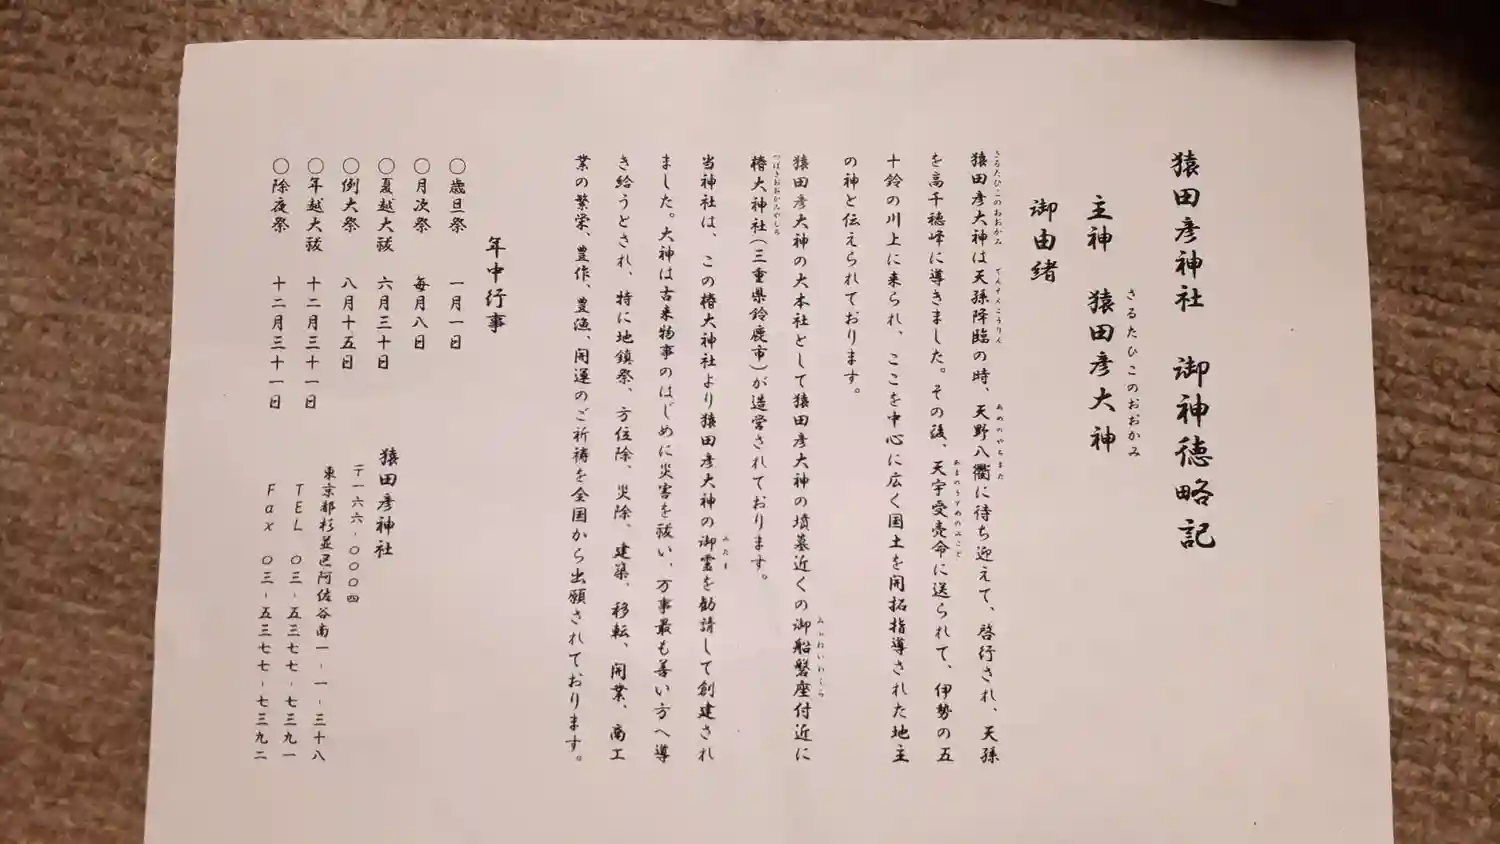 猿田彦神社　御神徳略記
主神　猿田彦大神
さるたひこのおおかみ
御由緒
猿田彦大神は天孫降臨の時、天野八衢に待ち迎えて、啓行され、天孫
さるたひこのおおかみ　てんそんこうりん　あめのやちまた
を高千穂峰に導きました。その後、天宇受売命に送られて、伊勢の五
あまのうずめのみこと
十鈴の川上に来られ、ここを中心に広く国土を開拓指導された地主
の神と伝えられております。
猿田彦大神の大本社として猿田彦大神の墳墓近くの御船磐座付近に
みふねいわくら
椿大神社(三重県鈴鹿市)が造営されております。
つばきおおかみやしろ
当神社は、この椿大神社より猿田彦大神の御霊を勧請して創建され
みたま
ました。大神は古来物事のはじめに災害を祓い、万事最も善い方へ導
き給うとされ、特に地鎮祭、方位除、災除、建築、移転、開業、商工
業の繁栄、豊作、豊漁、開運のご祈祷を全国から出願されております。
年中行事
〇歳旦祭　一月一日
〇月次祭　毎月八日
〇夏越大祓　六月三十日
〇例大祭　八月十五日
〇年越大祓　十二月三十一日
〇除夜祭　十二月三十一日
猿田彦神社
〒一六六-〇〇〇四
東京都杉並区阿佐谷南一-一-三十八
TEL　〇三-五三七七-七三九一
Fax　〇三-五三七七-七三九二